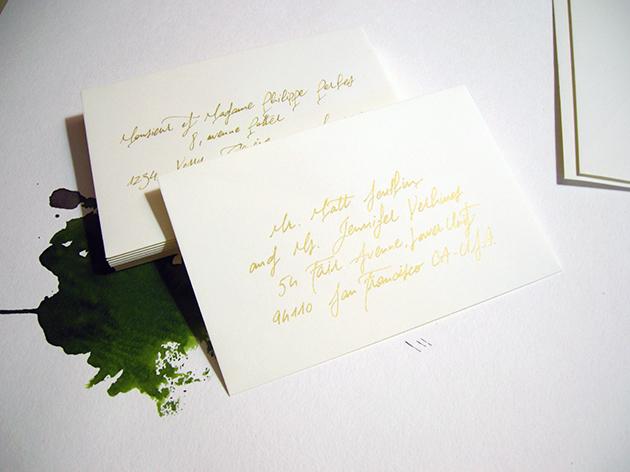 Monsieur et Madame Philippe
8, avenue
1234
Mr. Matt Jenkins
and Ms. Jennifer
54 Fair Avenue, Lower Unit
94110 San Francisco CA - U.S.A.